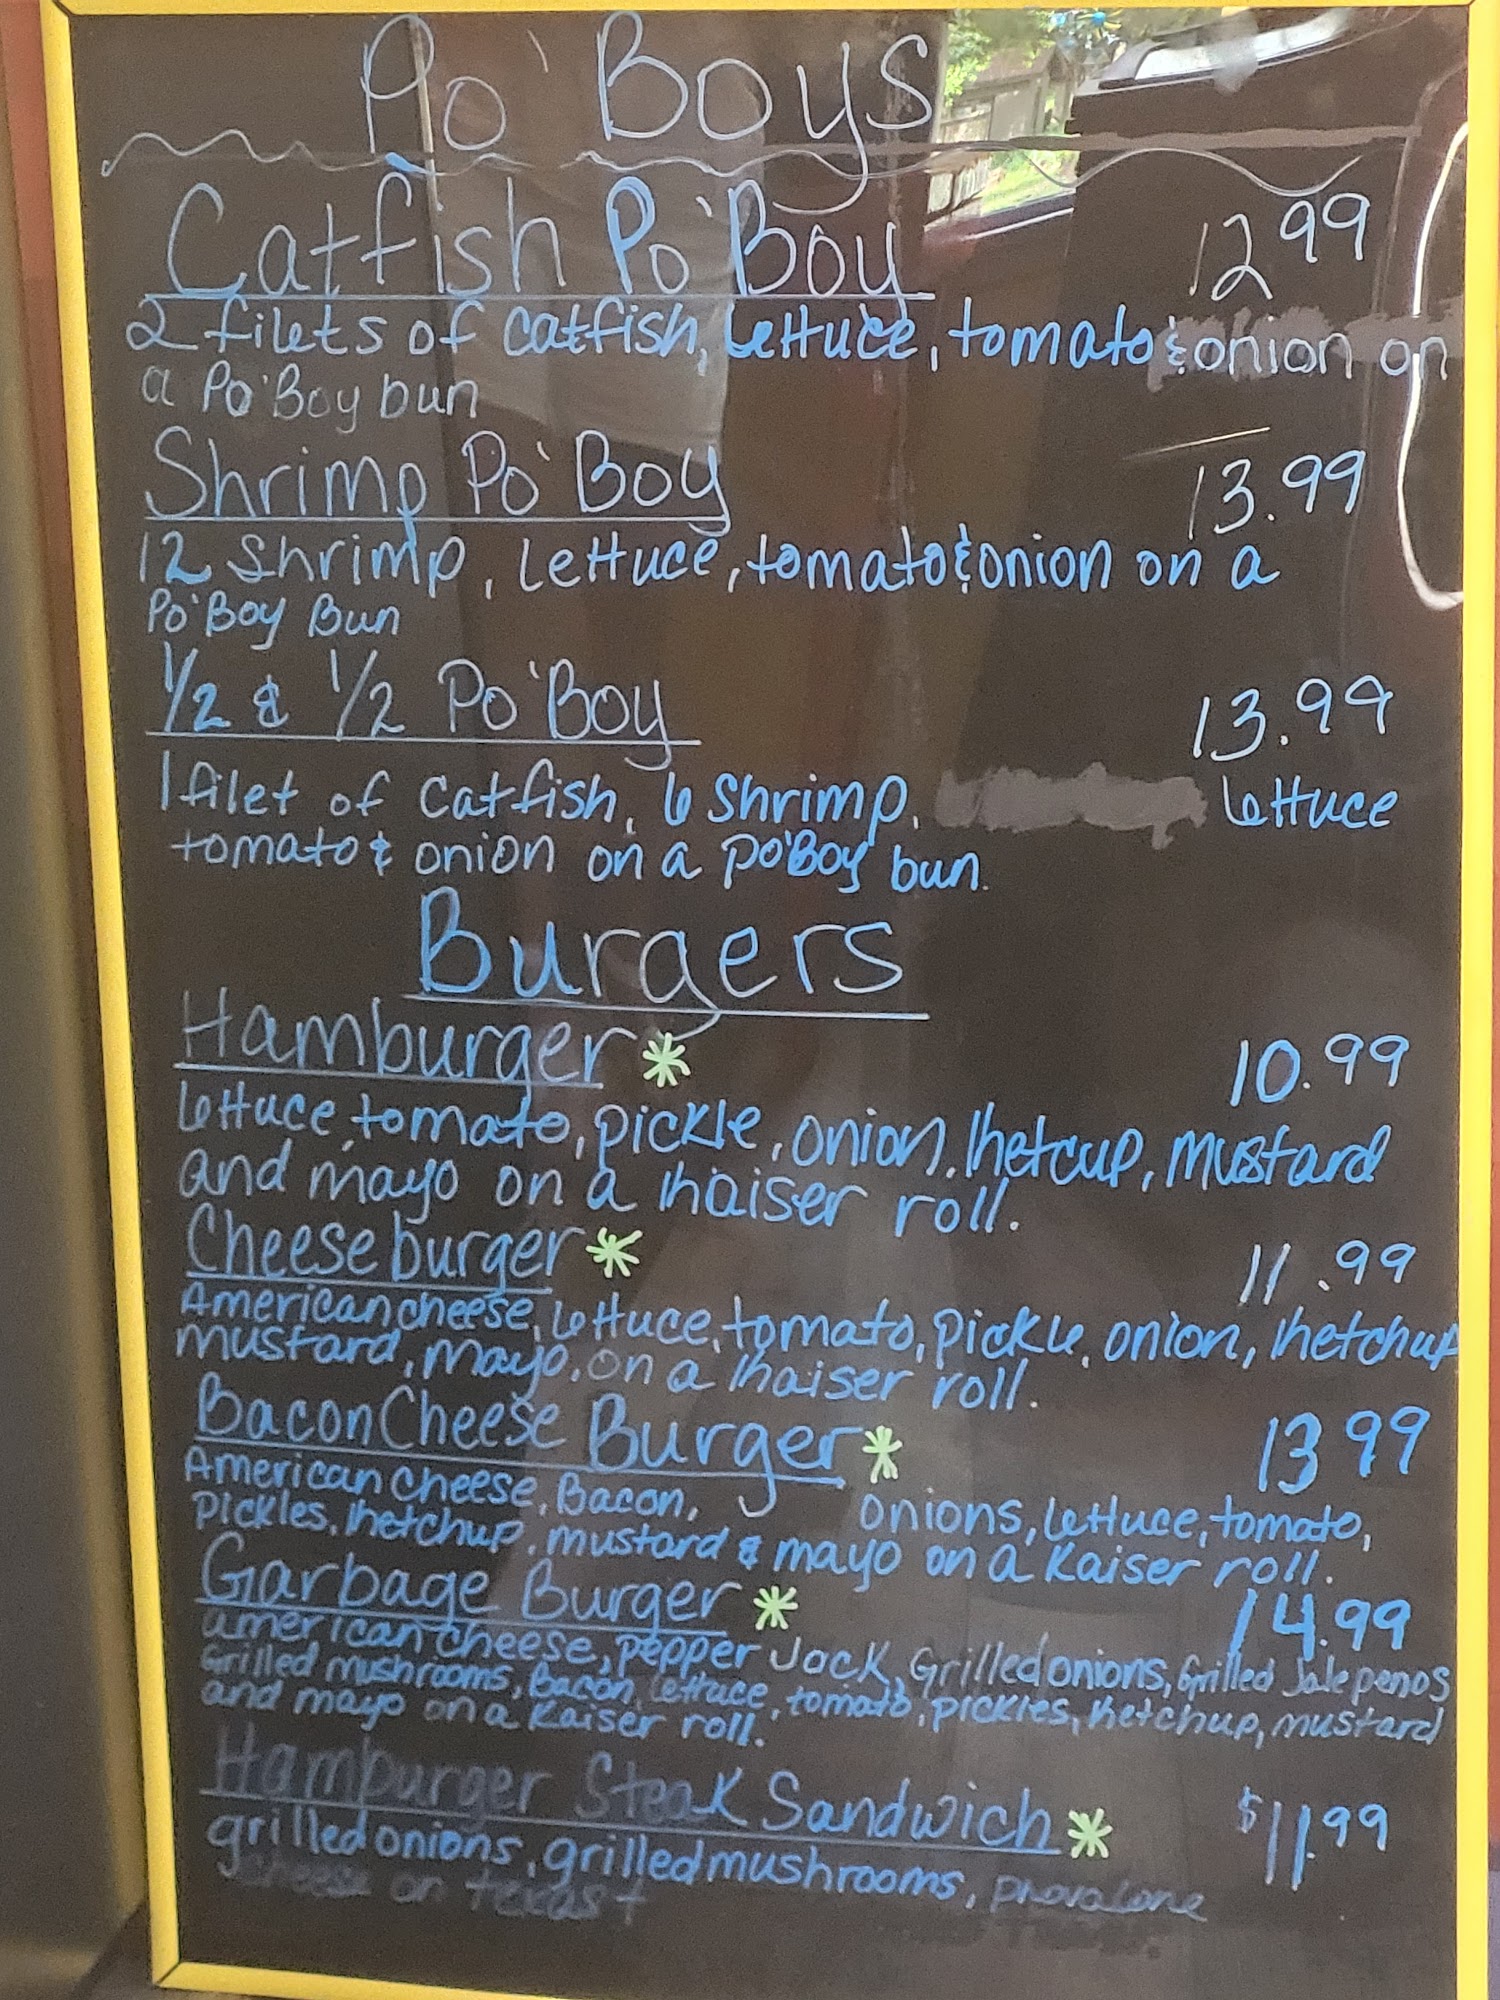 Po'Boys
Catfish Po'Boy 12 99
2 filets of catfish, lettuce, tomato & onion on
a Po'Boy bun
Shrimp Po'Boy 13.99
12 Shrimp, lettuce, tomato & onion on a
Po'Boy Bun
1/2 & 1/2 Po'Boy 13.99
1 filet of catfish, 6 shrimp, lettuce
tomato & onion on a po'Boy bun.
Burgers
Hamburger * 10.99
lettuce, tomato, pickle, onion, ketcup, mustard
and mayo on a kaiser roll.
Cheeseburger * 11.99
American cheese, lettuce, tomato, pickle, onion, ketchup
mustard, mayo, on a kaiser roll.
Bacon Cheese Burger * 13 99
American Cheese, Bacon, onions, lettuce, tomato,
Pickles, ketchup, mustard & mayo on a Kaiser roll.
Garbage Burger * 14.99
american cheese, pepper Jack, Grilled onions, Grilled Jalepenos
Grilled mushrooms, Bacon, lettuce, tomato, pickles, ketchup, mustard
and mayo on a Kaiser roll.
Hamburger Steak Sandwich * $11.99
grilled onions, grilled mushrooms, provalone
cheese on texas t